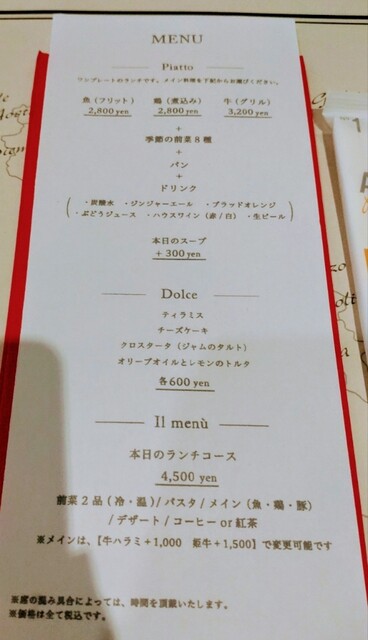 MENU
Piatto
ワンプレートのランチです。メイン料理を下記からお選びください。
魚(フリット) 鶏(煮込み) 牛(グリル)
2,800 yen 2,800 yen 3,200 yen
+
季節の前菜8種
+
パン
+
ドリンク
・炭酸水 ・ジンジャーエール ・ブラッドオレンジ
・ぶどうジュース ・ハウスワイン(赤/白) ・生ビール
本日のスープ
+300 yen
Dolce
ティラミス
チーズケーキ
クロスタータ(ジャムのタルト)
オリーブオイルとレモンのトルタ
各600 yen
Il menù
本日のランチコース
4,500 yen
前菜2品(冷・温)/パスタ/メイン(魚・鶏・豚)
/デザート/コーヒー or 紅茶
※メインは、【牛ハラミ+1,000 姫牛+1,500】で変更可能です
※席の混み具合によっては、時間を頂戴いたします。
※価格は全て税込です。